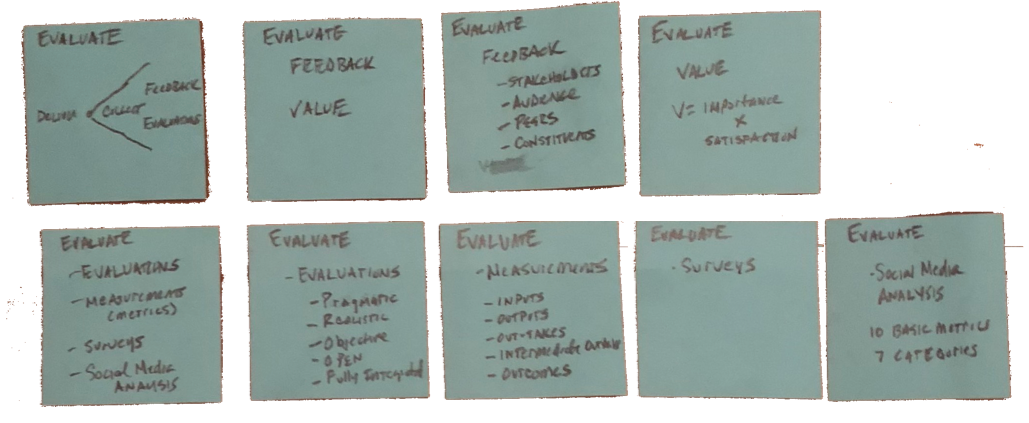 EVALUATE
DELIVER
COLLECT
FEEDBACK
EVALUATIONS
EVALUATE
FEEDBACK
VALUE
EVALUATE
FEEDBACK
- STAKEHOLDERS
- AUDIENCE
- PEERS
- CONSTITUENTS
EVALUATE
VALUE
V = IMPORTANCE
X
SATISFACTION
EVALUATE
- EVALUATIONS
- MEASUREMENTS
(METRICS)
- SURVEYS
- Social Media
ANALYSIS
EVALUATE
- EVALUATIONS
- Pragmatic
- Realistic
- Objective
- OPEN
- Fully Integrated
EVALUATE
- MEASUREMENTS
- INPUTS
- OUTPUTS
- OUT-TAKES
- Intermediate Outcomes
- OUTCOMES
EVALUATE
- SURVEYS
EVALUATE
- Social Media
ANALYSIS
10 BASIC METRICS
7 CATEGORIES